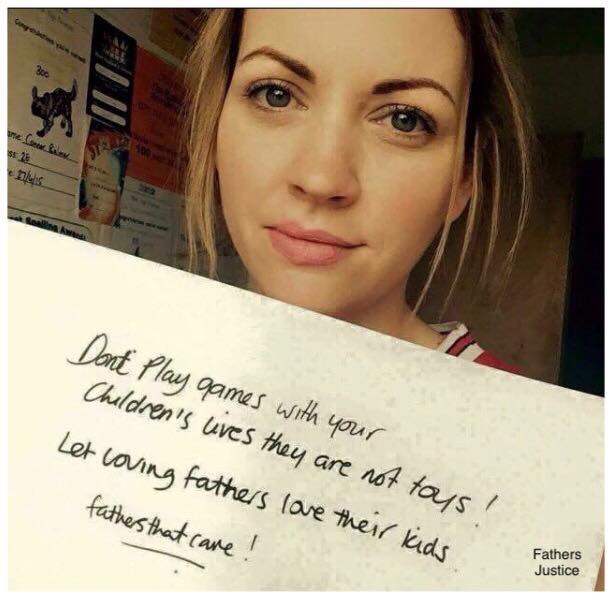 Congratulations you've earned
300
ame: Connor
ss: 2E
e: 27/4/15
Spelling Award
Dont Play games with your
Children's lives they are not toys!
Let loving fathers love their kids
fathers that care!
Fathers
Justice